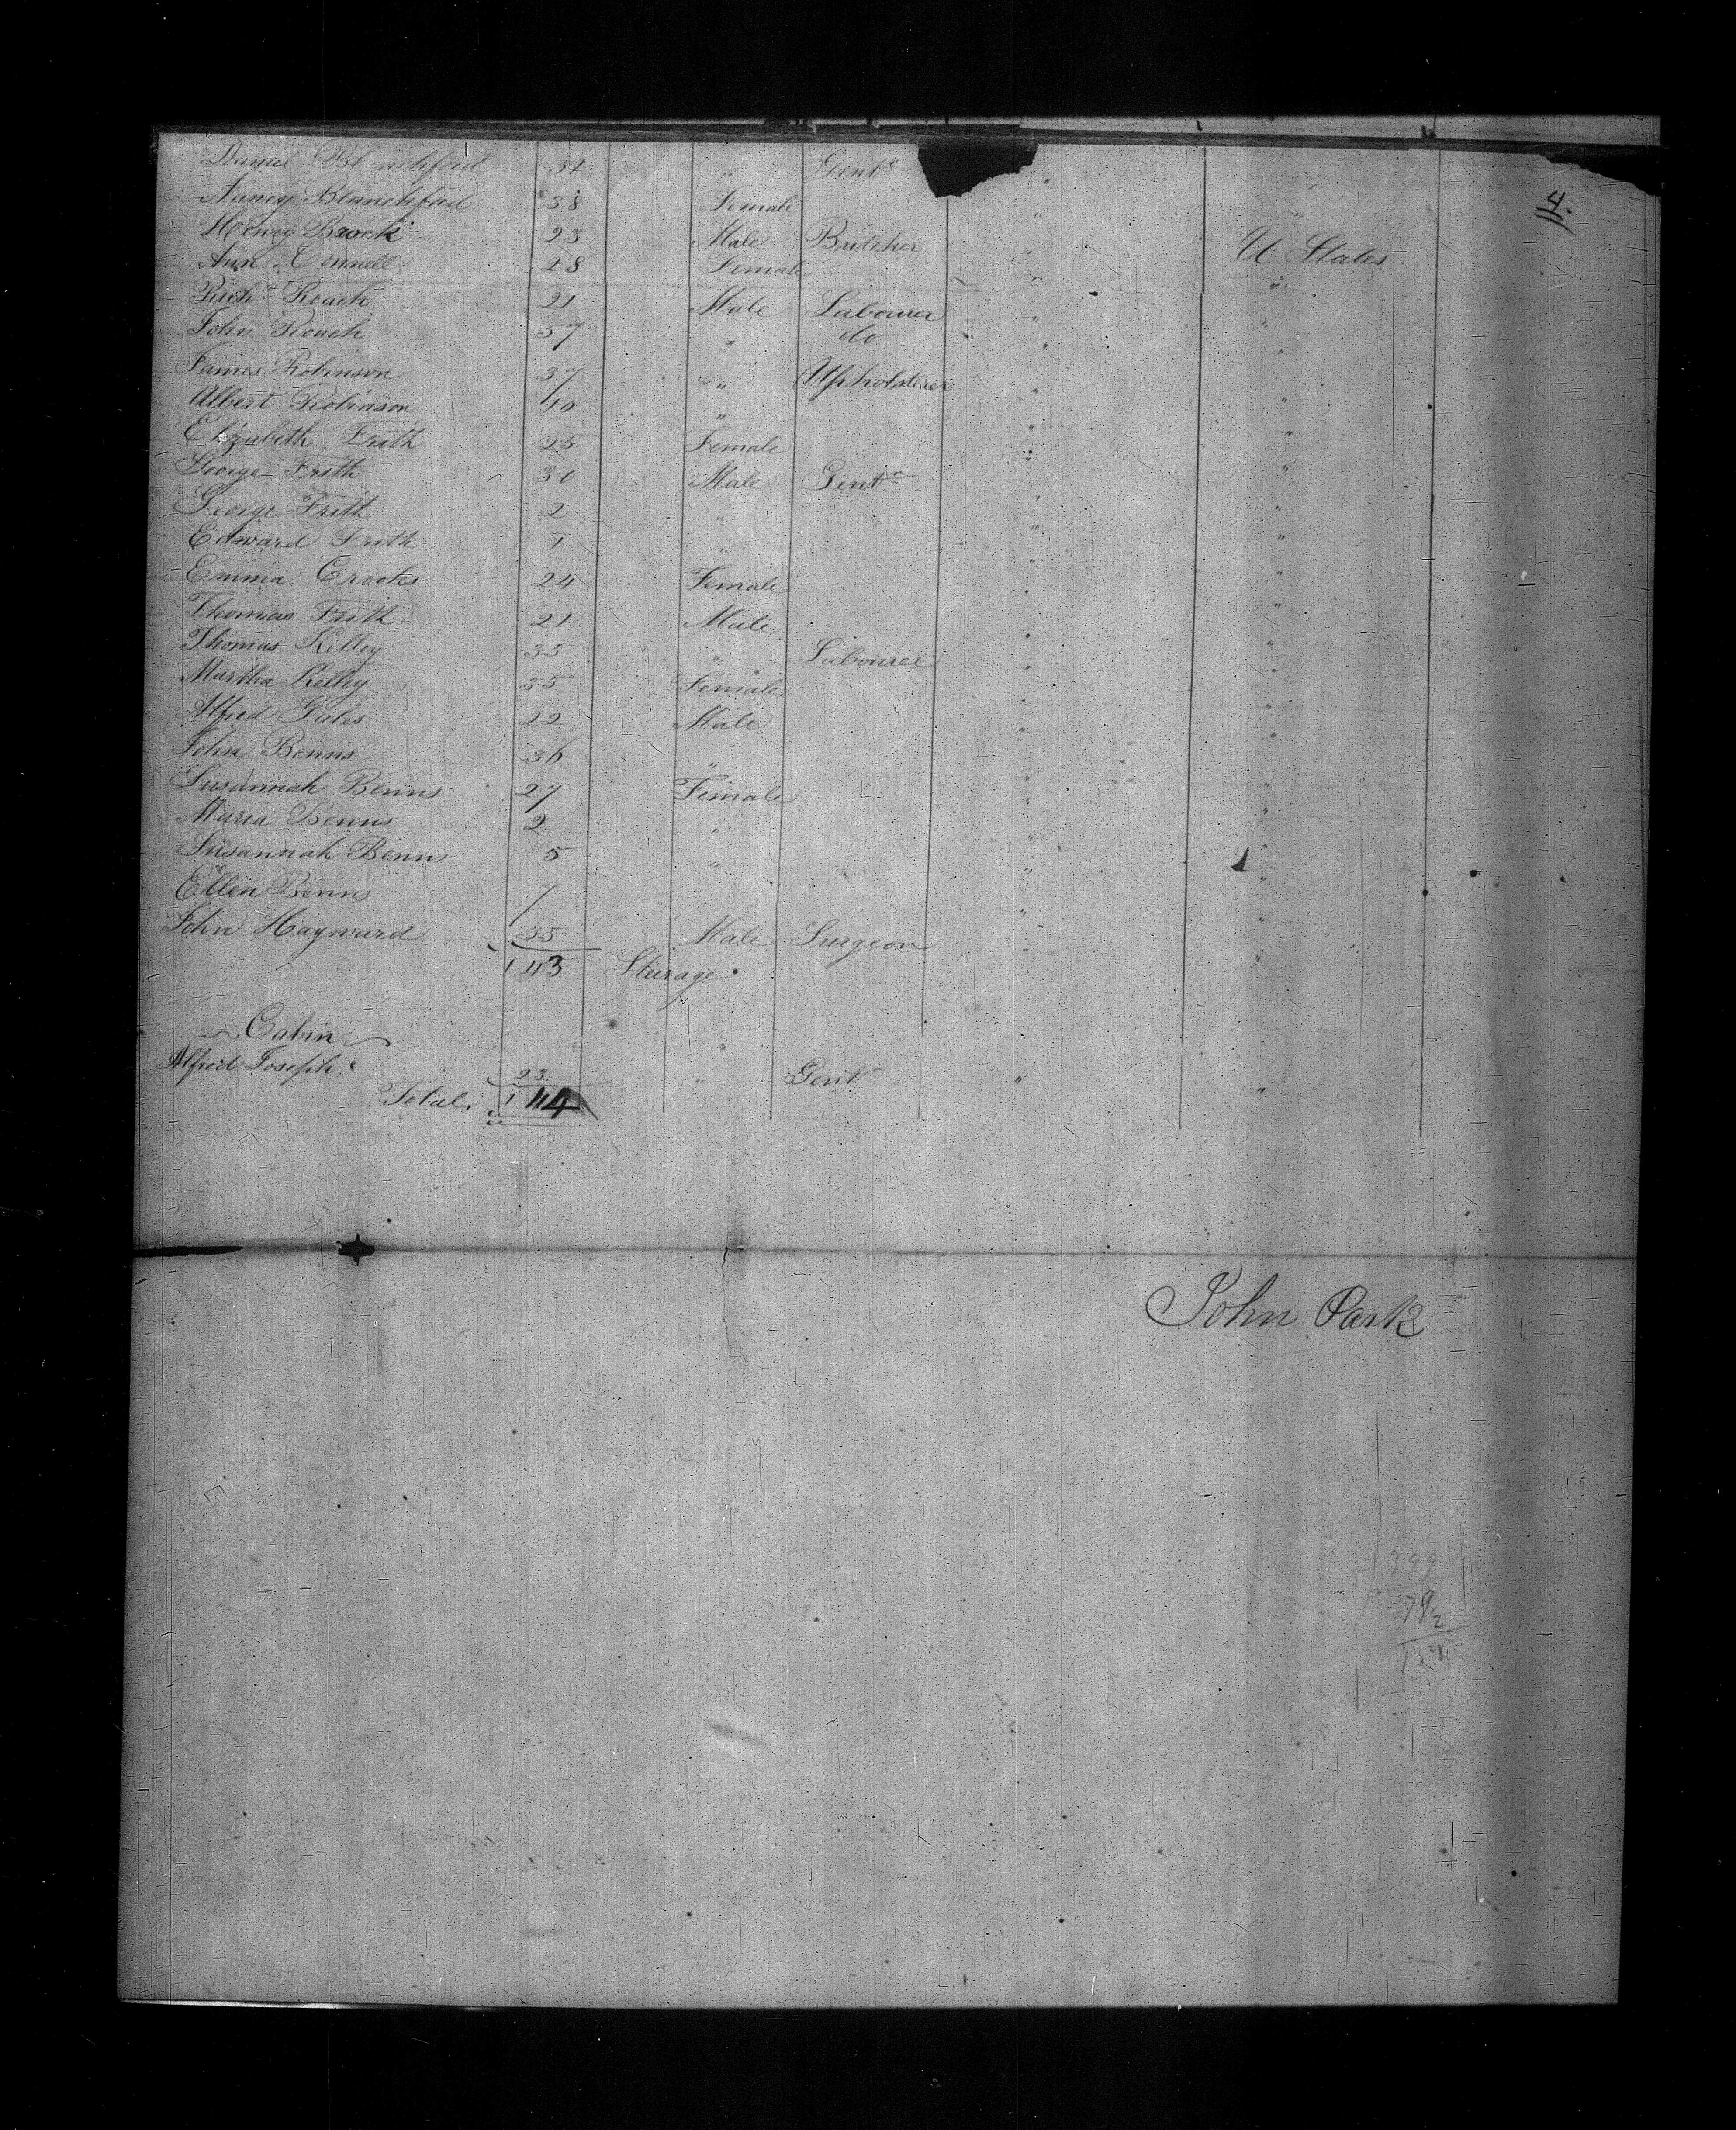 4.
Daniel Bl nchford 31 " Gentn
Nancy Blanchford 38 Female " "
Henry Brock 23 Male Butcher " U States
Ann Connell 28 Female " "
Richd Roach 21 Male Labourer " "
John Roach 57 " do " "
James Robinson 37 " Upholsterer " "
Albert Robinson 10 " " "
Elizabeth Frith 25 Female " "
George Frith 30 Male Gentn " "
George Frith 2 " " "
Edward Frith 1 " " "
Emma Crooks 24 Female " "
Thomas Frith 21 Male " "
Thomas Kelley 35 " Labourer " "
Martha Kelley 35 Female " "
Alfred Giles 22 Male " "
John Benns 36 " " "
Susannah Benns 27 Female " "
Maria Benns 2 " " "
Susannah Benns 5 " " "
Ellen Benns 7 " "
John Hayward 35 Male Surgeon " "
143 Sturage
Cabin
Alfred Joseph 23 " Gent " "
Total. 144
John Park
792